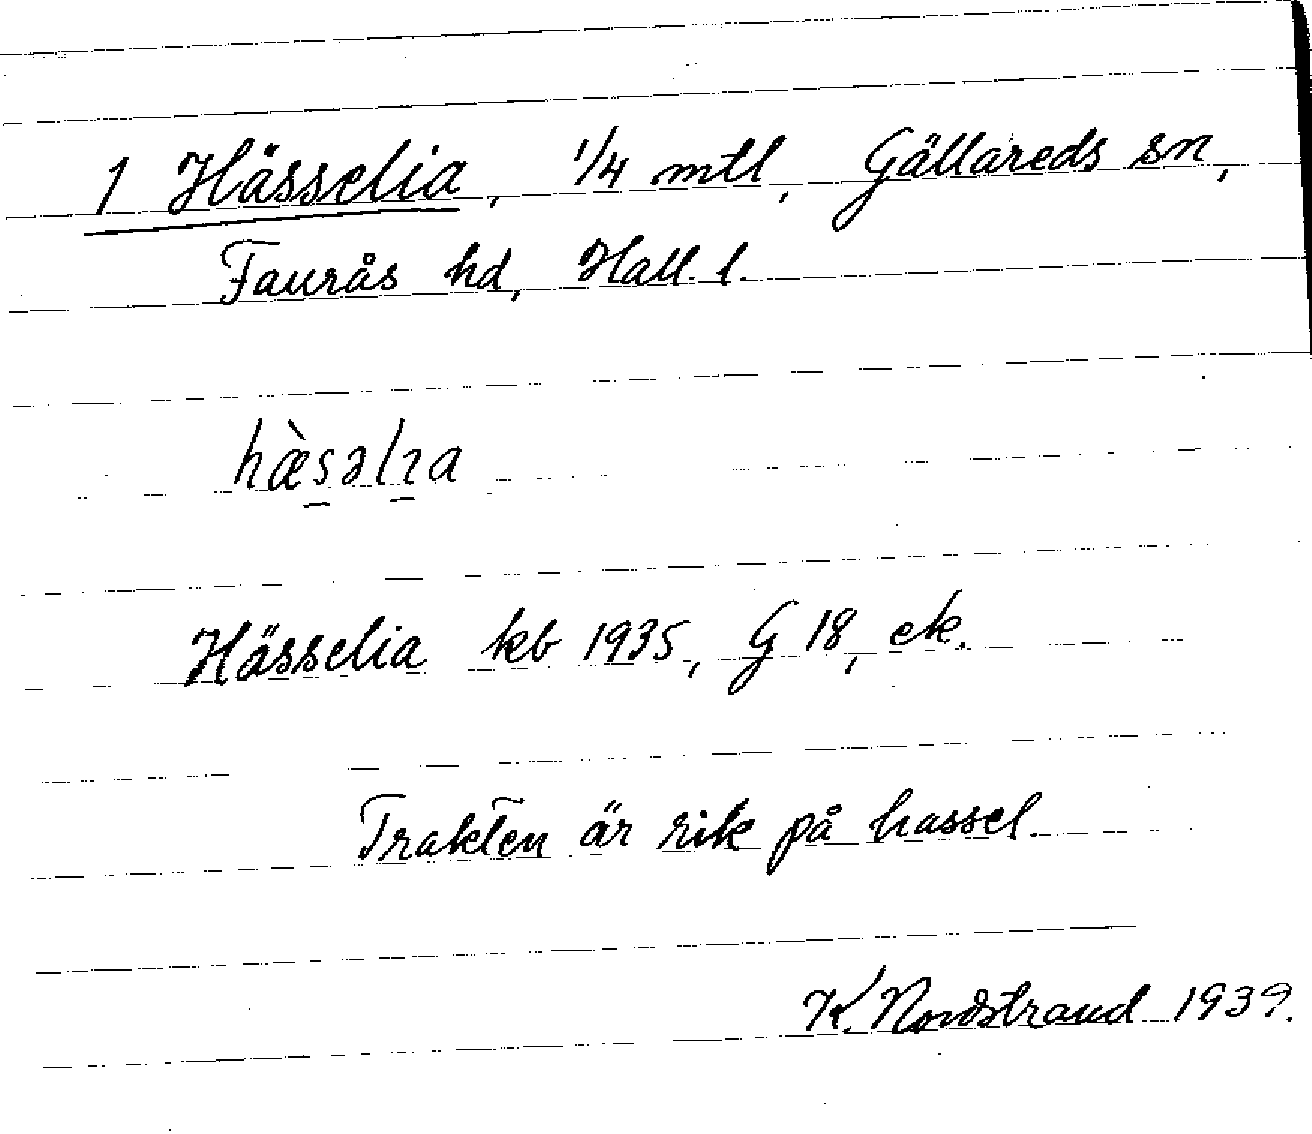 1 Hässelia, 1/4 mtl, Gällareds sn,
Faurås hd, Hall. l.
hæ̀s̠əlɿ̠a
Hässelia kb 1935, G 18, ek.
Trakten är rik på hassel.
K. Nordstrand 1939.